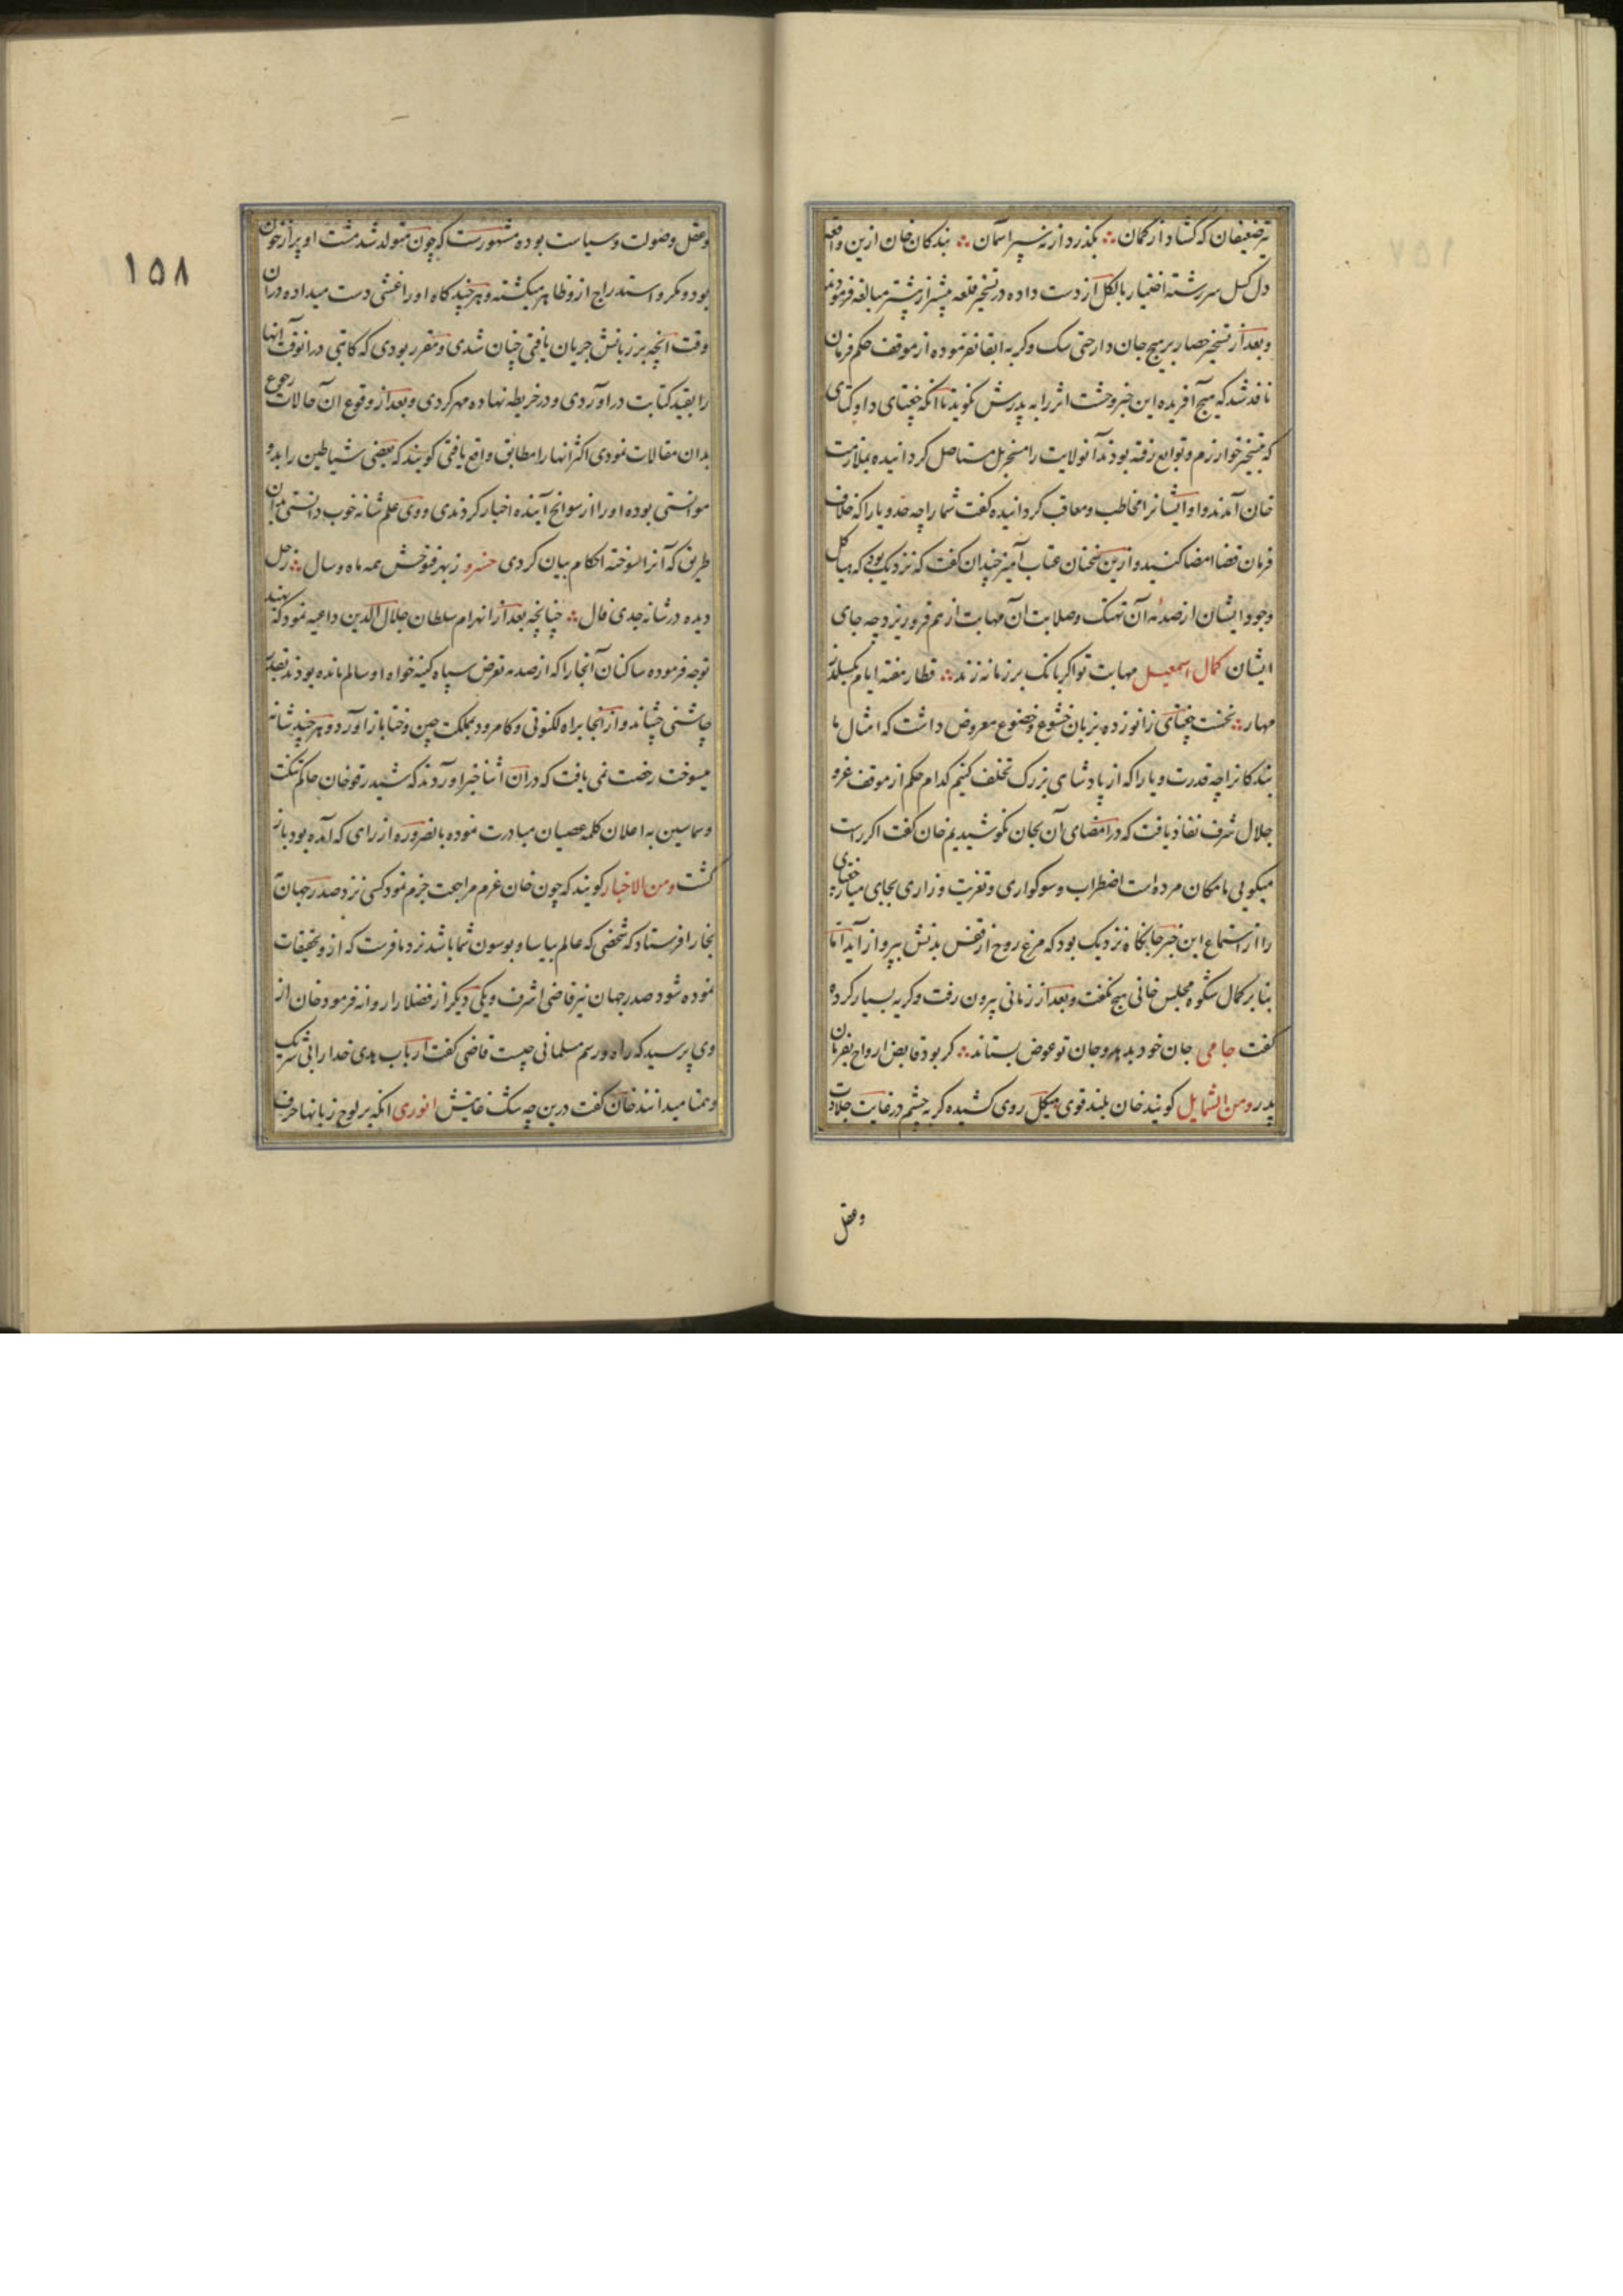 تیر ضعیفان که کشاد از کمان ؞ بکذرد از نه سپر اسمان ؞ بندکان خان ازین واقعه
دل کسل سررشته اختیار بالکل از دست داده در تسخیر قلعه پیشتر از پیشتر مبالغه فرمودند
و بعد از تسخیر حصار بر هیچ جان دار حتی سک و کربه ابقا نفرموده از موقف حکم فرمان
نافذ شد که هیچ آفریده این خبر وحشت اثر را به پدرش نکوید تا انکه چغتای و اوکتای
که بتسخیر خوارزم و توابع رفته بودند آنولایت را مسخر بل مستاصل کردانیده بملازمت
خان آمدند و او ایشانرا مخاطب و معاقب کردانیده کفت شما را چه حد و یارا که خلاف
فرمان قضا امضا کنید و ازین سخنان عتاب آمیز چندان کفت که نزدیک بود که هیاکل
وجود ایشان از صدمه آن نهنک و صلابت آن مهابت از هم فرو ریزد چه جای
ایشان کمال اسمعیل مهابت تو اکر بانک بر زمانه زند ؞ قطار هفته ایام بکسلد
مهار ؞ نخست چغتای زانو زده بزبان خشوع و خضوع معروض داشت که امثال ما
بندکانرا چه قدرت و یارا که از یاد شاهی بزرک تخلف کنیم کدام حکم از موقف عز و
جلال شرف نفاذ یافت که در امضای آن بجان نکوشیدیم خان کفت اکر راست
میکویی مامکان مرده است اضطراب و سوکواری و تعزیت و زاری بجای میار چغتای
را از استماع این خبر جانکاه نزدیک بود که مرغ روح از قفس بدنش بپرواز آید اما
بنا بر کمال شکوه مجلس خانی هیچ نکفت و بعد از زمانی بیرون رفت و کریه بسیار کرده
کفت جامی جان خود بدهد و جان تو عوض بستاند ؞ کر بود قابض ارواح بفرمان
پدر و من الشمایل کویند خان بلند قوی هیکل روی کشیده کربه چشم در غایت جلادت
وعقل
١٥٨
وعقل و صولت و سیاست بوده مشهورست که چون متولد شد مشت او پر از خون
بود و مکر و استدراج ازو ظاهر میکشته و هر چند کاه او را غشی دست میداده در ان
وقت انچه بر زبانش جریان یافتی چنان شدی و مقرر بودی که کاتبی درانوقت آنها
را بقید کتابت در آوردی و در خریطه نهاده مهر کردی و بعد از وقوع ان حالات رجوع
بدان مقالات نمودی اکثر انها را مطابق واقع یافتی کویند که بعضی شیاطین را بدو
موانستی بوده او را از سوانح آینده اخبار کردندی و وی علم شانه خوب دانستی بدان
طریق که آنرا سوخته احکام بیان کردی خسرو ز بهر فتوحش همه ماه و سال ؞ زحل
دیده در شانه جدی فال ؞ چنانچه بعد از انهزام سلطان جلال الدین داعیه نمود که بهند
توجه فرموده ساکنان آنجا را که از صدمه تعرض سپاه کینه خواه او سالم مانده بودند
چاشنی چشاند و از آنجا براه لکنوتی و کامرود بمملکت چین و ختا باز آورد و هر چند شانه
میسوخت رخصت نمی یافت که دران اثنا خبر آوردند که شیدرقو خان حاکم تنکت
و سماسین به اعلان کلمه عصیان مبادرت نموده بالضروره از راهی که آمده بود باز
کشت و من الاخبار کویند که چون خان عزم مراجعت جزم نمود کسی نزد صدر جهان
بخارا فرستاد که شخصی که عالم بیاسا و یوسون شما باشد نزد ما فرست که ازو تحقیقات
نموده شود صدر جهان نیز قاضی اشرف و یکی دیکر از فضلا را روانه فرمود خان از
وی پرسید که راه و رسم مسلمانی چیست قاضی کفت ارباب هدی خدا را بی شریک
و همتا میدانند خان کفت درین چه شک غایتش انوری انکه بر لوح زبانها حرف